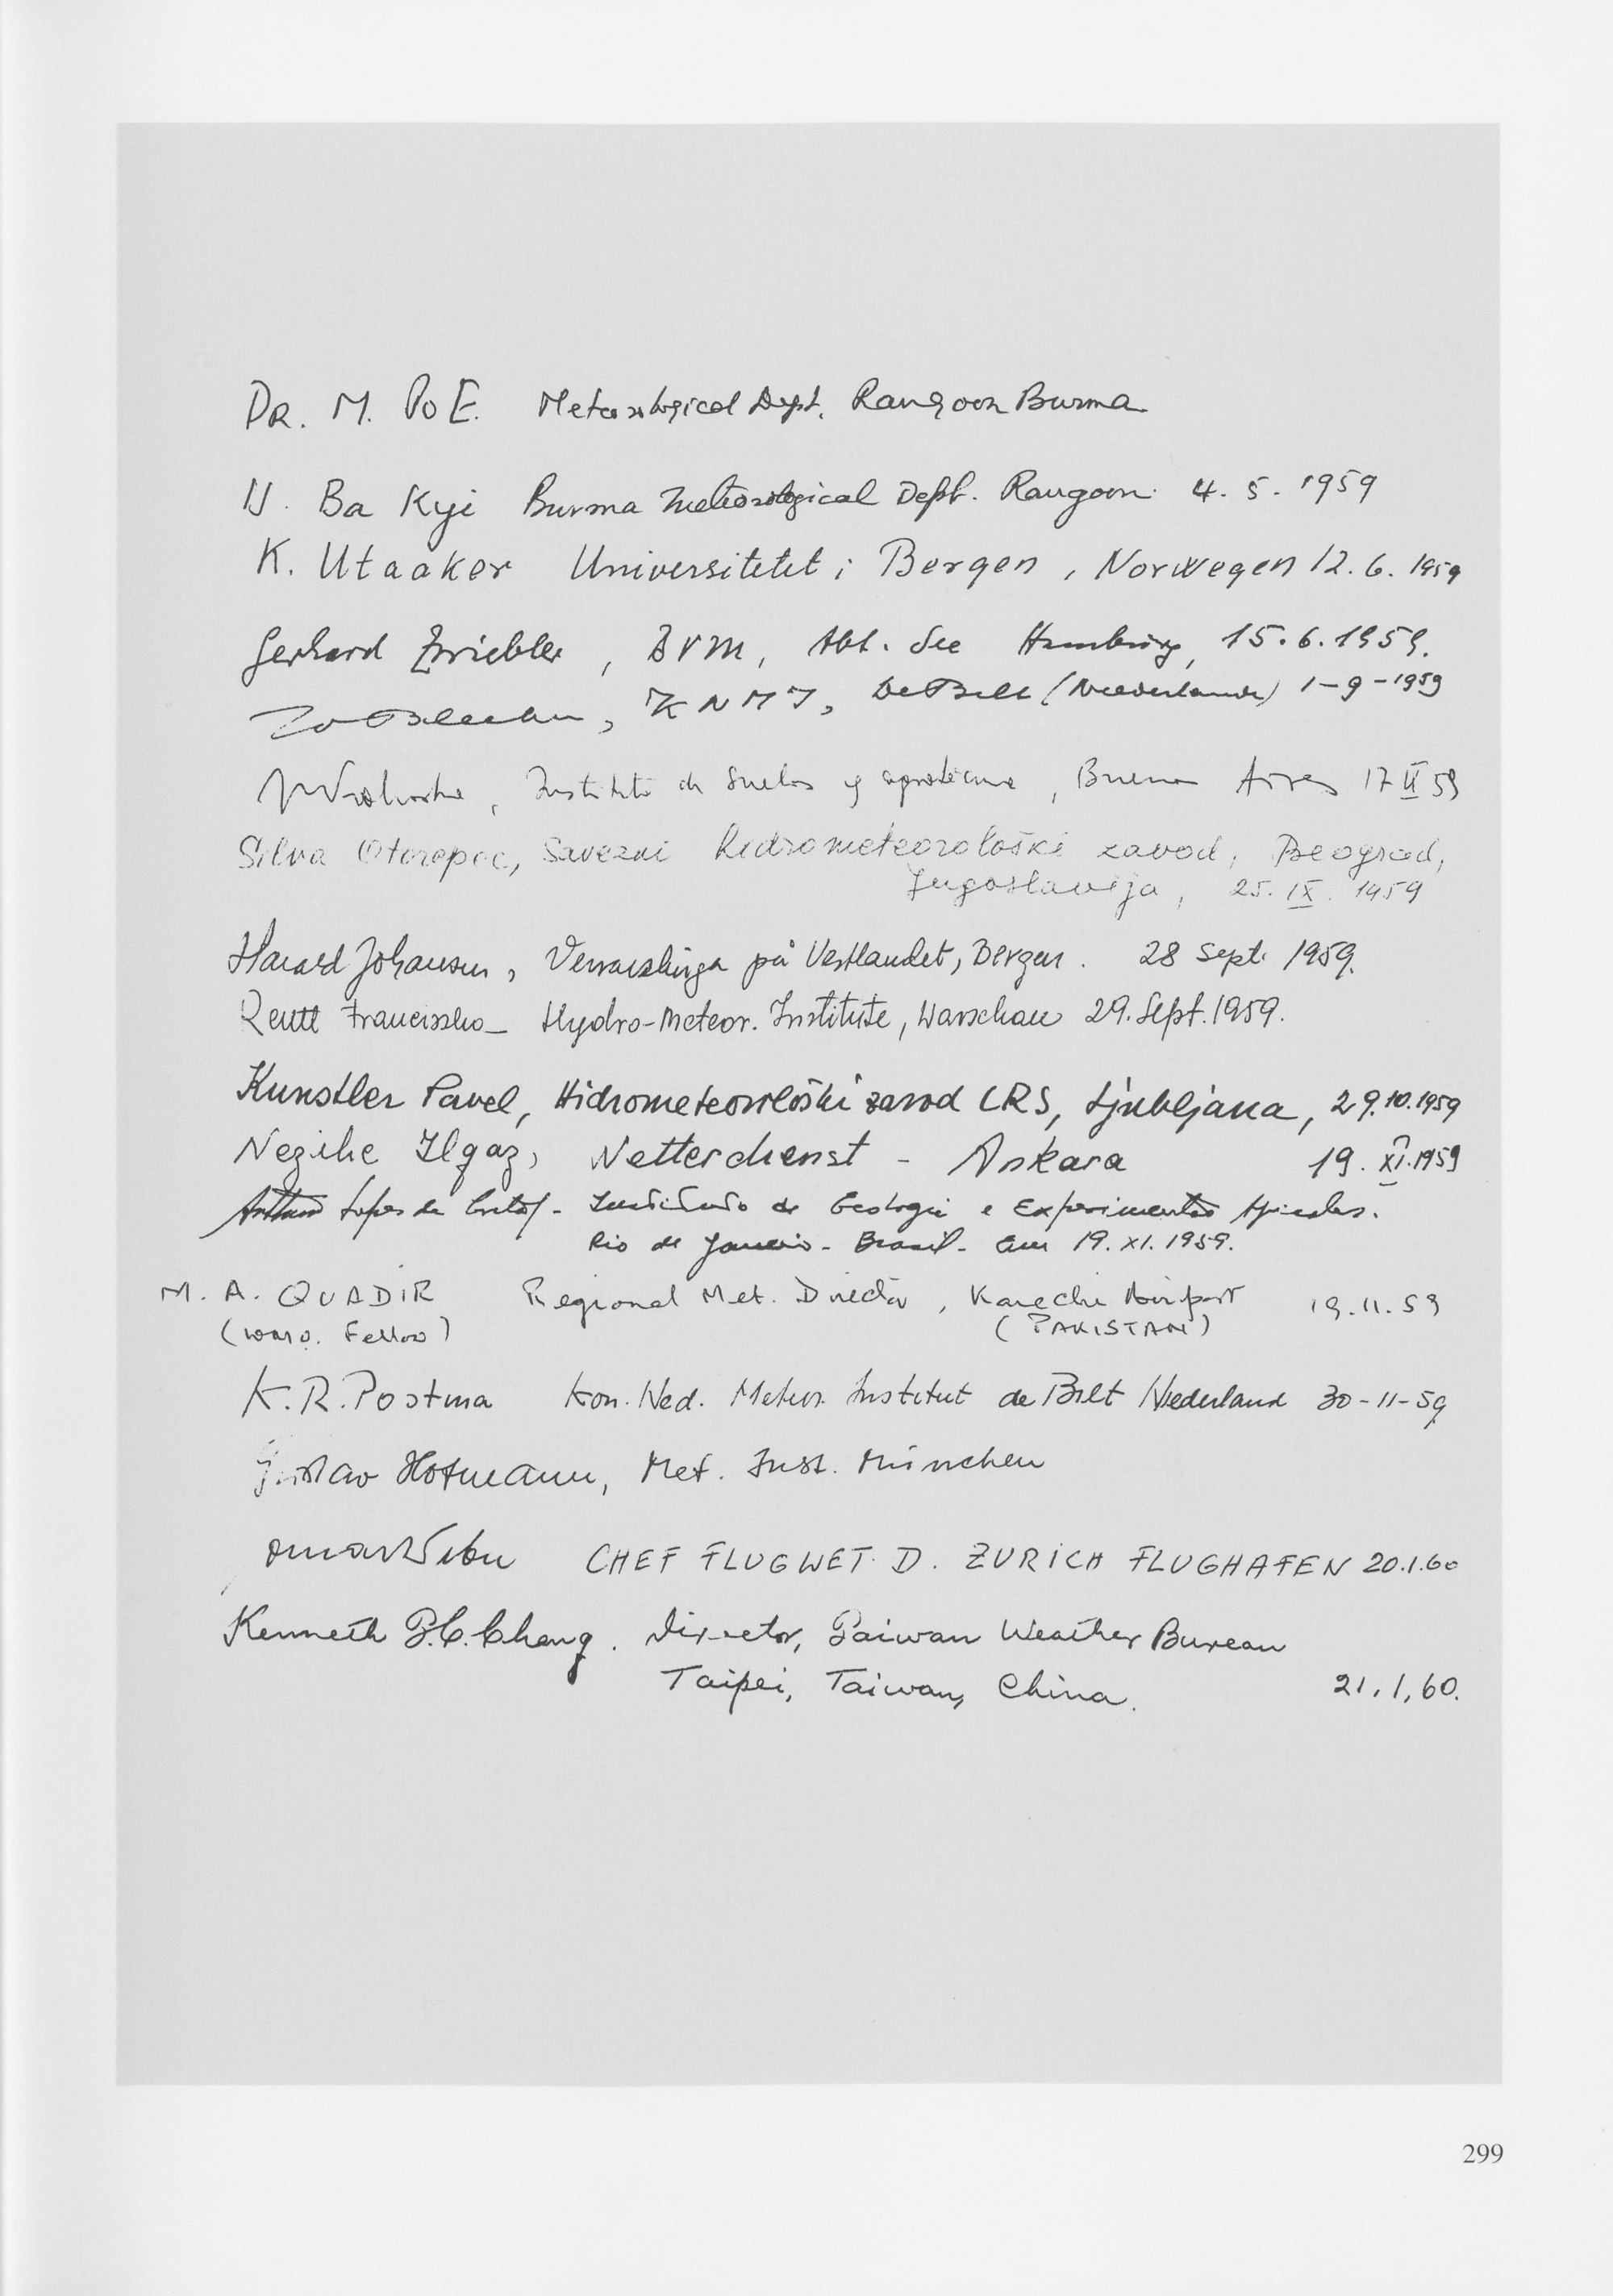 DR. M. Po E. Meteorological Dept. Rangoon Burma
U. Ba Kyi Burma Meteorological Dept. Rangoon 4. 5. 1959
K. Utaaker Universitetet i Bergen, Norwegen 12. 6. 1959
Gerhard Zwiebler, BVM, Abt. See Hamburg, 15. 6. 1959.
, KNMI, De Bilt (Niederlande) 1-9-1959
, Instituto de Suelos y, Buenos Aires 17 59
Silva Otorepec, Savezni hidrometeorološki zavod, Beograd,
Jugoslavija, 25. IX. 1959
Harald Johansen, Vervarslinga på Vestlandet, Bergen. 28 Sept. 1959.
Reutt Franciszko_ Hydro-Meteor. Institute, Warschau 29. Sept. 1959.
Kunstler Pavel, Hidrometeorološki zavod LRS, Ljubljana, 29.10.1959
Nezihe Ilgaz, Wetterdienst - Ankara 19. XI. 1959
Lopes da - Instituto de Ecologia e Experimentação Agricolas.
Rio de Janeiro - Brasil - am 19. XI. 1959.
M. A. QUADIR Regional Met. Director, Karachi Airport 19.11.59
(WMO. Fellow) (PAKISTAN)
K. R. Postma Kon. Ned. Meteor. Instituut de Bilt Nederland 30-11-59
Gustav Hofmann, Met. Inst. München
CHEF FLUGWET. D. ZURICH FLUGHAFEN 20.1.60
Kenneth T.C. Cheng. Director, Taiwan Weather Bureau
Taipei, Taiwan, China. 21, 1, 60.
299